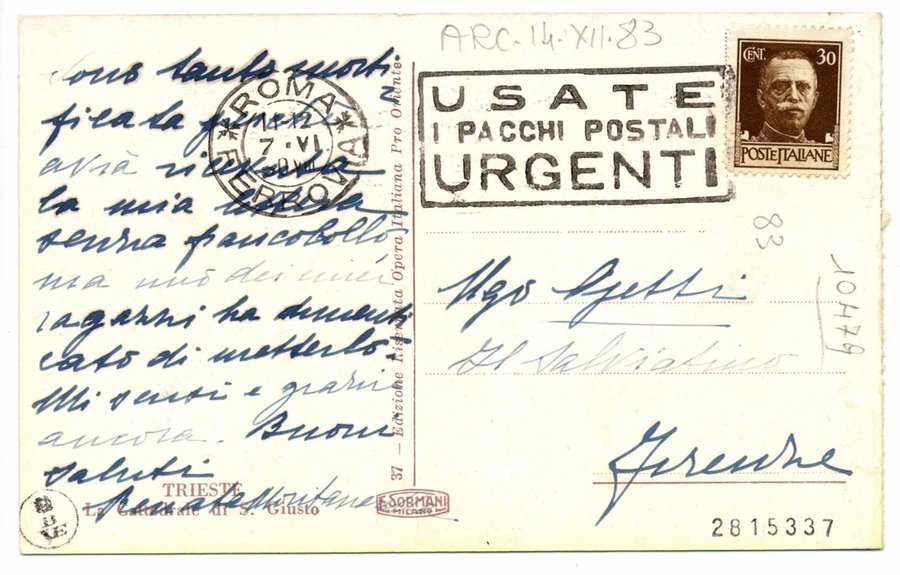 ARC. 14. XII. 83
CENT. 30
POSTE ITALIANE
ROMA
FERROVIA
7 · VI
USATE
I PACCHI POSTALI
URGENTI
Sono tanto morti-
ficata
avrà ricevuta
la mia
senza francobollo,
ma uno dei miei
ragazzi ha dimenti
cato di metterlo.
Mi scusi e grazie
ancora. Buoni
saluti
Renato
Ugo Ojetti
Il Salviatino
Firenze
83
10479
37 — Edizione Riservata Opera Italiana Pro Oriente
TRIESTE
La Cattedrale di S. Giusto
E. SORMANI
MILANO
2815337